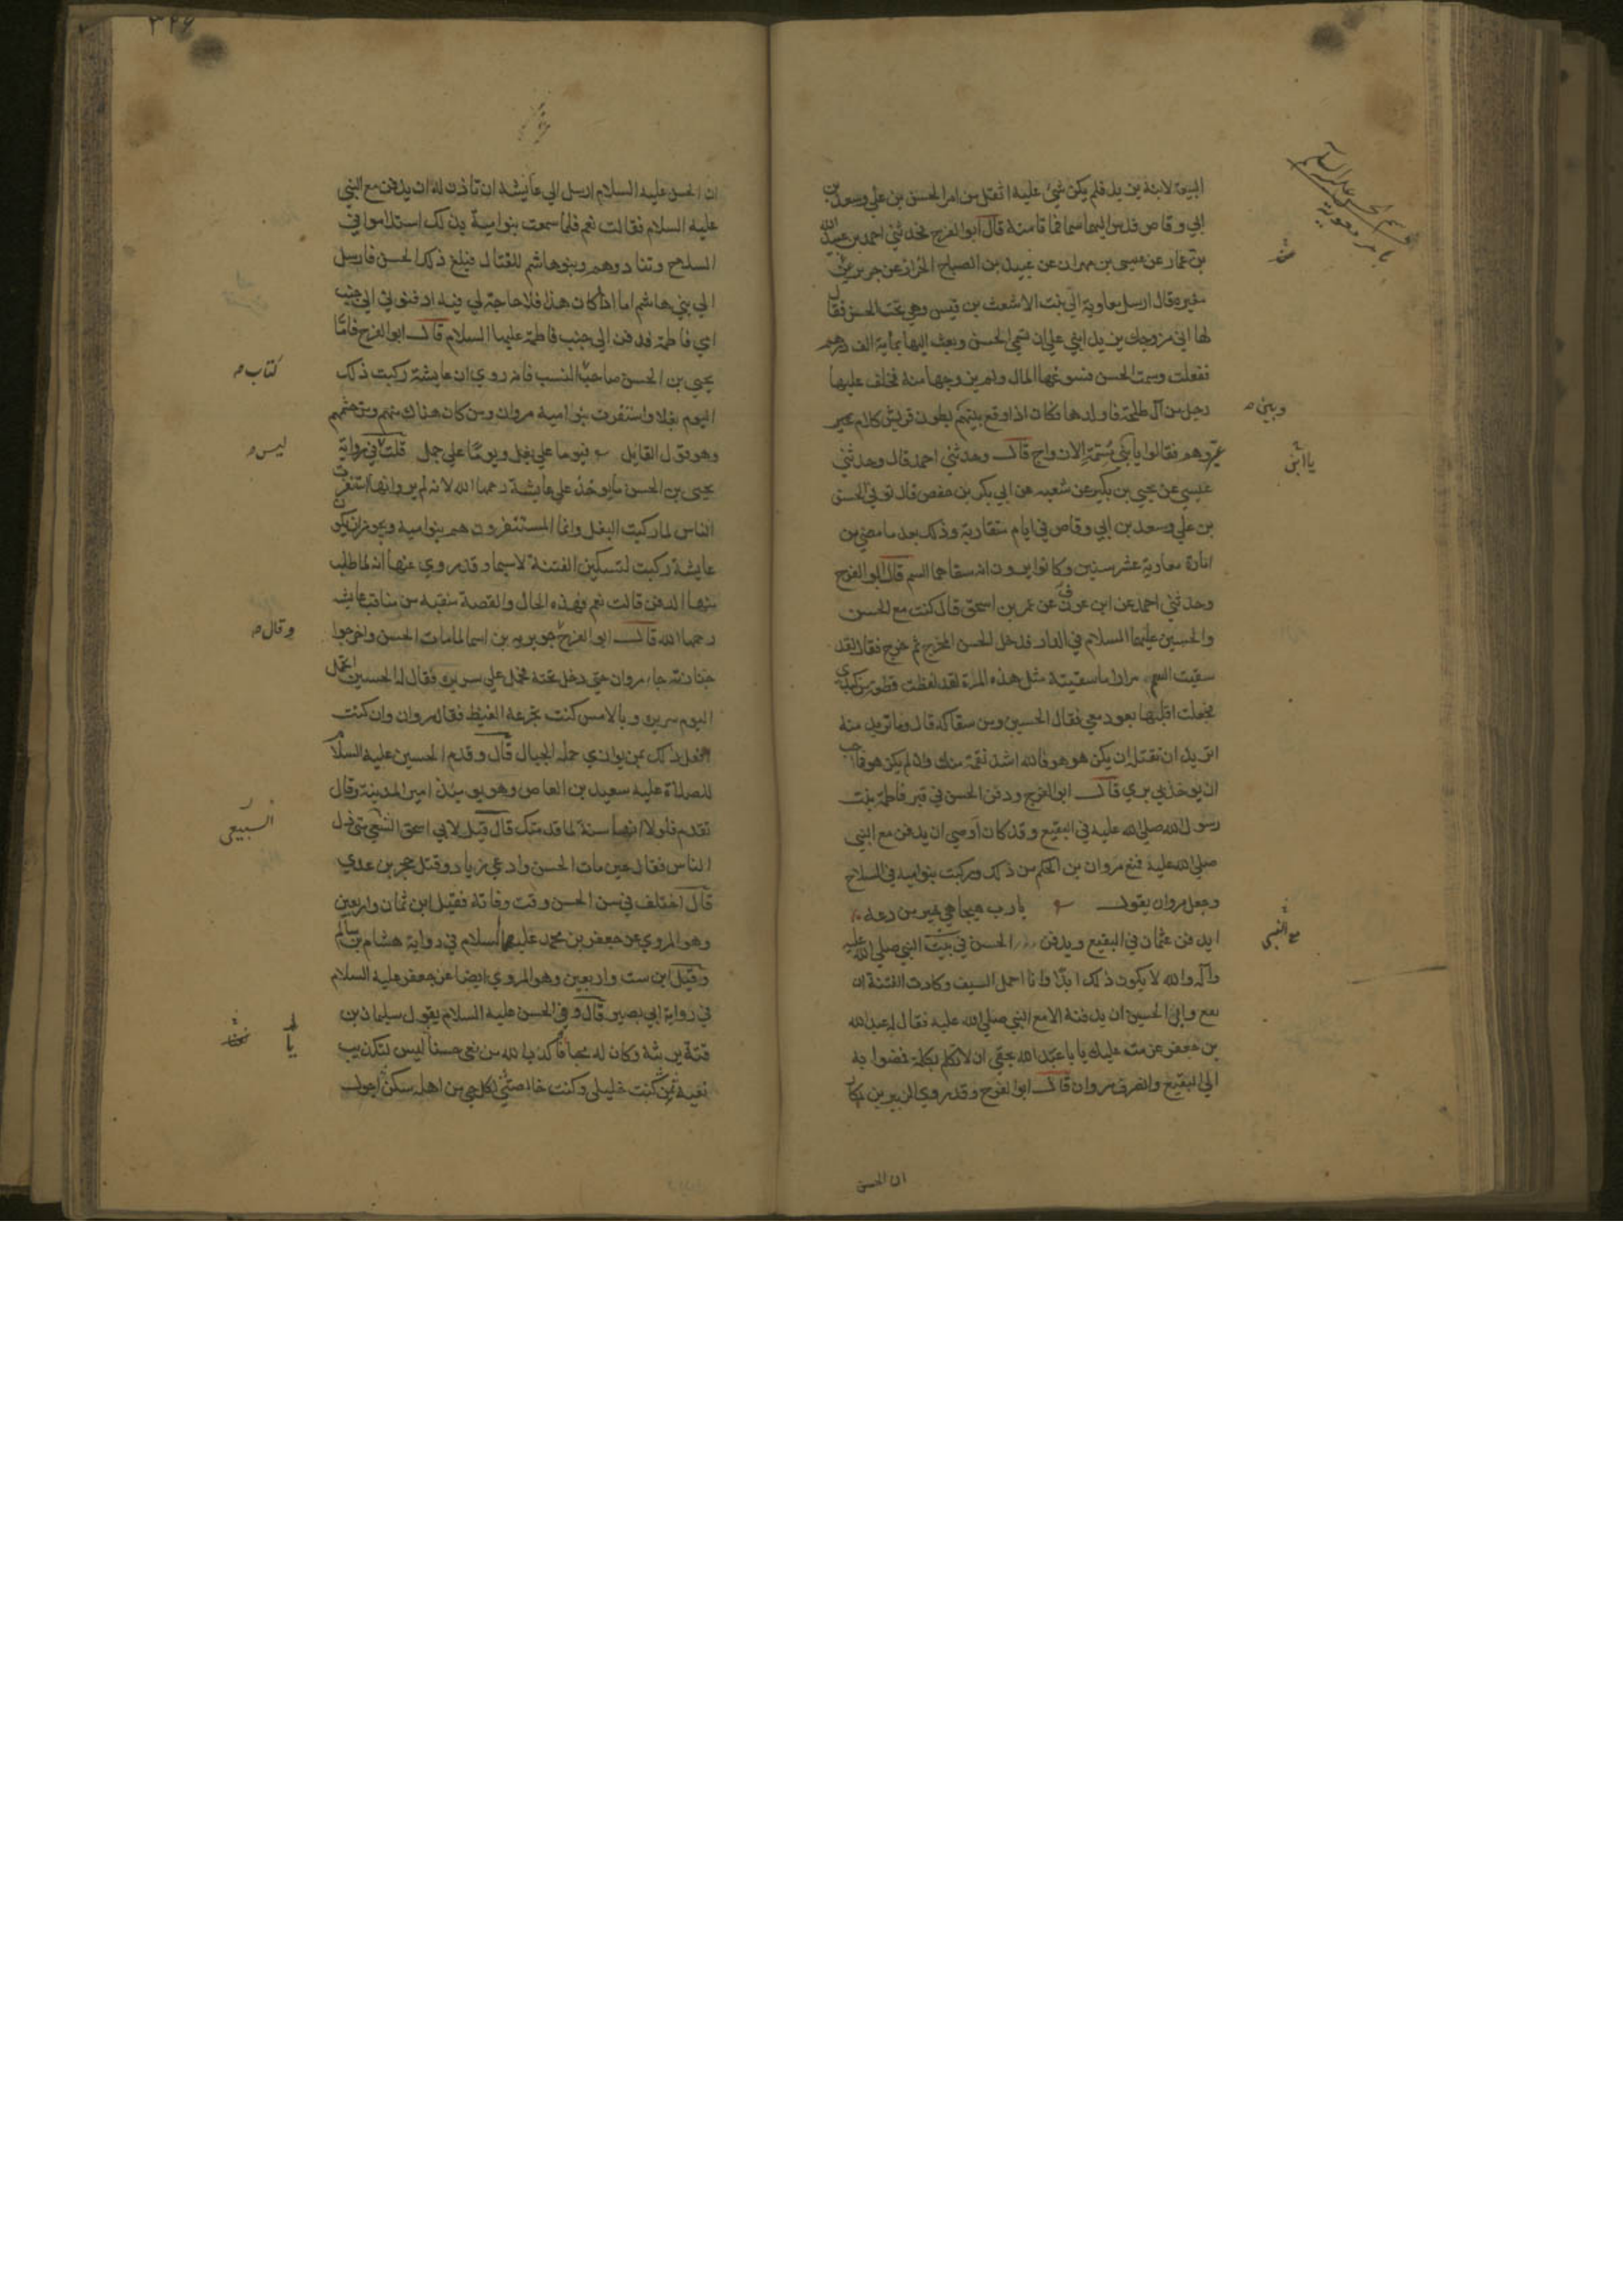 البيعة لابنه يزيد فلم يكن شيء عليه اثقل من امر الحسن بن علي وسعد بن
ابي وقاص فدس اليهما سما فماتا منه قال ابو الفرج فحدثني احمد بن عبيد الله
بن عمار عن عيسى بن مهران عن عبيد بن الصباح الخراز عن جرير عن
مغيره قال ارسل معاوية الى بنت الاشعث بن قيس وهي تحت الحسن فقال
لها اني مزوجك يزيد ابني علي ان تسمي الحسن وبعث اليها بماية الف درهم
ففعلت وسمت الحسن فسوغها المال ولم يزوجها منه فخلف عليها
رجل من آل طلحة فاولدها فكان اذا وقع بينهم بطون قريش كلام
عيروهم فقالوا يا بني مسمة الازواج قال وحدثني احمد قال وحدثني
عيسي عن يحيي بن بكير عن شعبه عن ابي بكر بن حفص قال توفي الحسن
بن علي وسعد بن ابي وقاص في ايام متقاربة وذلك بعد ما مضي من
امارة معاوية عشر سنين وكانوا يرون انه سقاهما السم قال ابو الفرج
وحدثني احمد عن ابن عون عن عمر بن اسحق قال كنت مع الحسن
والحسين عليهما السلام في الدار فدخل الحسن المخرج ثم خرج فقال لقد
سقيت السم مرارا ما سقيته مثل هذه المرة لقد لفظت قطعة من كبدي
فجعلت اقلبها بعود معي فقال الحسين ومن سقاكه قال وما تريد منه
اتريد ان تقتله ان يكن هو هو فالله اشد نقمة منك وان لم يكن هو فما احب
ان يوخذ بي بري قال ابو الفرج ودفن الحسن في قبر فاطمة بنت
رسول الله صلي الله عليه في البقيع وقد كان اوصي ان يدفن مع النبي
صلي الله عليه فمنع مروان بن الحكم من ذلك وركبت بنو اميه في السلاح
وجعل مروان يقول يا رب هيجا هي خير من دعه
ايدفن عثمان في البقيع ويدفن الحسن في بيت النبي صلي الله عليه
وآله والله لا يكون ذلك ابدا وانا احمل السيف وكادت الفتنة ان
تقع وابى الحسين ان يدفنه الا مع النبي صلي الله عليه فقال له عبد الله
بن جعفر عزمت عليك يا با عبد الله بحقي ان لا تكلم بكلمة فمضوا به
الي البقيع وانصرف مروان قال ابو الفرج وقد روي الزبير بن بكار
ان الحسن
وبين
يا ابن
مع النبي
ان الحسن عليه السلام ارسل الي عايشة ان تاذن له ان يدفن مع النبي
عليه السلام فقالت نعم فلما سمعت بنو امية بذلك استلاموا في
السلاح وتنادوا هم وبنو هاشم للقتال فبلغ ذلك الحسن فارسل
الي بني هاشم اما اذا كان هذا فلا حاجة لي فيه ادفنوني الي جنب
امي فاطمة فدفن الي جنب فاطمة عليها السلام قال ابو الفرج فاما
يحيي بن الحسن صاحب النسب فانه روي ان عايشة ركبت ذلك
اليوم بغلا واستنفرت بنو امية مروان ومن كان هناك منهم ومن حشمهم
وهو قول القايل فيوما علي بغل ويوما علي جمل قلت في رواية
يحيي بن الحسن ما يوخذ علي عايشة رحمها الله لانه لم يرو انها استنفرت
الناس لما ركبت البغل وانما المستنفرون هم بنو امية ويجوز ان يكون
عايشة ركبت لتسكين الفتنة لا سيما وقد روي عنها انه لما طلب
منها الدفن قالت نعم فهذه الحال والقصة منقبه من مناقب عايشه
رحمها الله قال ابو الفرج جويريه بن اسما لما مات الحسن واخرجوا
جنازته جاء مروان حتى دخل تحته فحمل علي سريره فقال له الحسين اتحمل
اليوم سريره وبالامس كنت تجرعه الغيظ فقال مروان وان كنت
افعل ذلك بمن يوازي حلمه الجبال قال وقدم الحسين عليه السلام
للصلاة عليه سعيد بن العاص وهو يومئذ امير المدينة وقال
تقدم فلولا انها سنة لما قدمتك قال قيل لابي اسحق متى ذل
الناس فقال حين مات الحسن وادعي زياد وقتل حجر بن عدي
قال اختلف في سن الحسن وقت وفاته فقيل ابن ثمان واربعين
وهو المروي عن جعفر بن محمد عليهما السلام في رواية هشام بن سالم
وقيل ابن ست واربعين وهو المروي ايضا عن جعفر عليه السلام
في رواية ابي بصير قال وفي الحسن عليه السلام يقول سليمان بن
قتة يرثيه وكان له محبا يا كذب الله من نعي حسنا ليس لتكذيب
نعيه ثمن كنت خليلي وكنت خالصتي لكل حي من اهله سكن اجول
كتاب
ليس
وقال
السبيعي
يا
٣٢٤